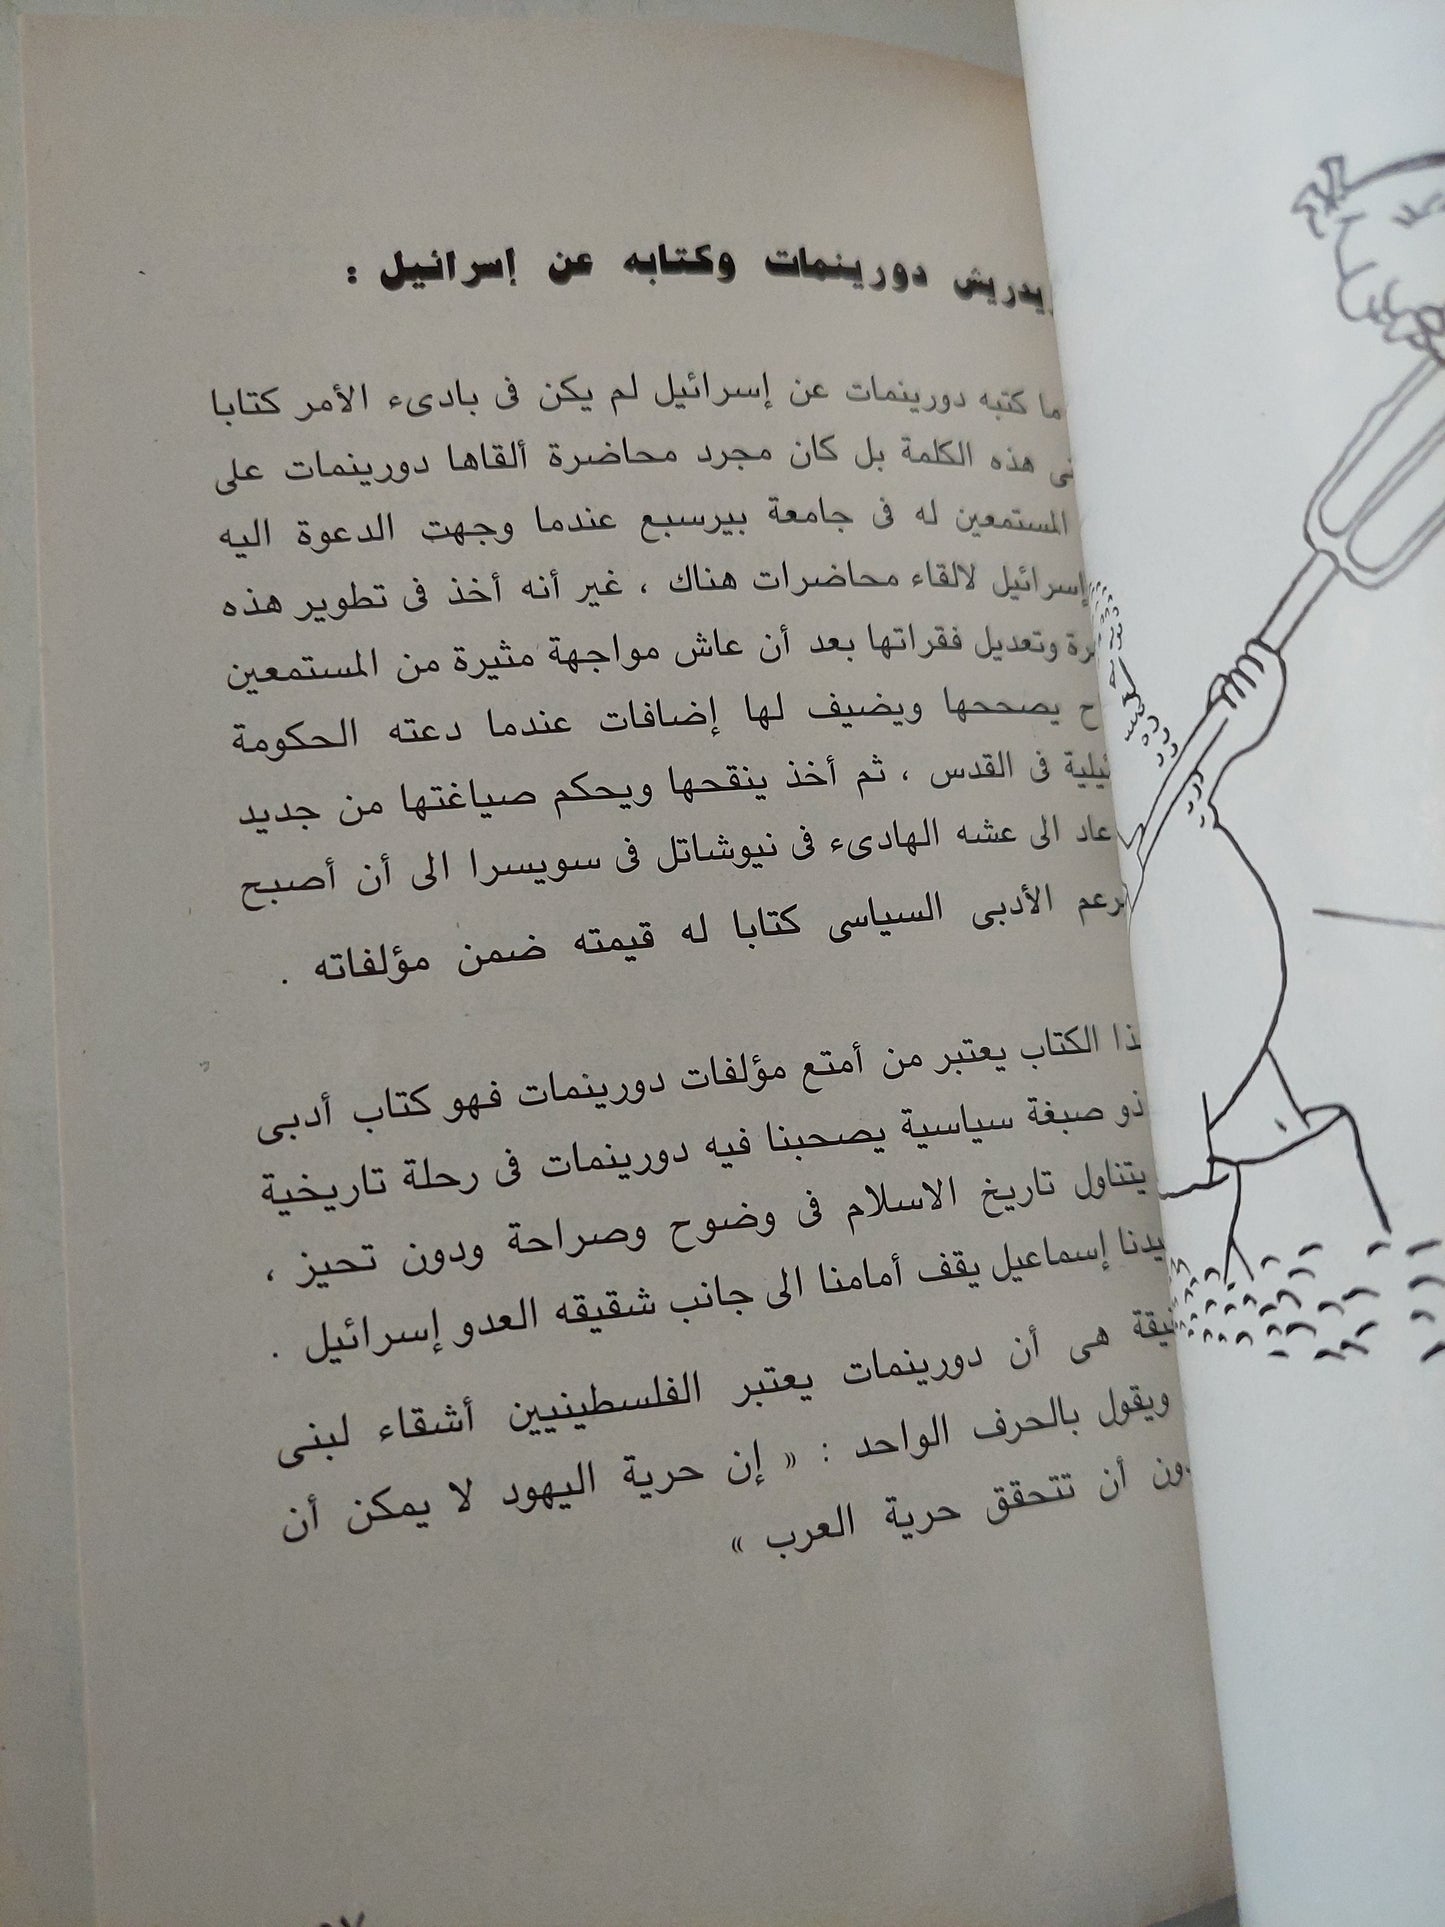 دورينمات وكتابه عن إسرائيل :
ما كتبه دورينمات عن إسرائيل لم يكن فى بادىء الأمر كتابا
هذه الكلمة بل كان مجرد محاضرة ألقاها دورينمات على
المستمعين له فى جامعة بيرسبع عندما وجهت الدعوة اليه
إسرائيل لالقاء محاضرات هناك ، غير أنه أخذ فى تطوير هذه
وتعديل فقراتها بعد أن عاش مواجهة مثيرة من المستمعين
يصححها ويضيف لها إضافات عندما دعته الحكومة
فى القدس ، ثم أخذ ينقحها ويحكم صياغتها من جديد
عاد الى عشه الهادىء فى نيوشاتل فى سويسرا الى أن أصبح
الأدبى السياسى كتابا له قيمته ضمن مؤلفاته .
الكتاب يعتبر من أمتع مؤلفات دورينمات فهو كتاب أدبى
ذو صبغة سياسية يصحبنا فيه دورينمات فى رحلة تاريخية
يتناول تاريخ الاسلام فى وضوح وصراحة ودون تحيز ،
إسماعيل يقف أمامنا الى جانب شقيقه العدو إسرائيل .
هى أن دورينمات يعتبر الفلسطينيين أشقاء لبنى
ويقول بالحرف الواحد : « إن حرية اليهود لا يمكن أن
أن تتحقق حرية العرب »